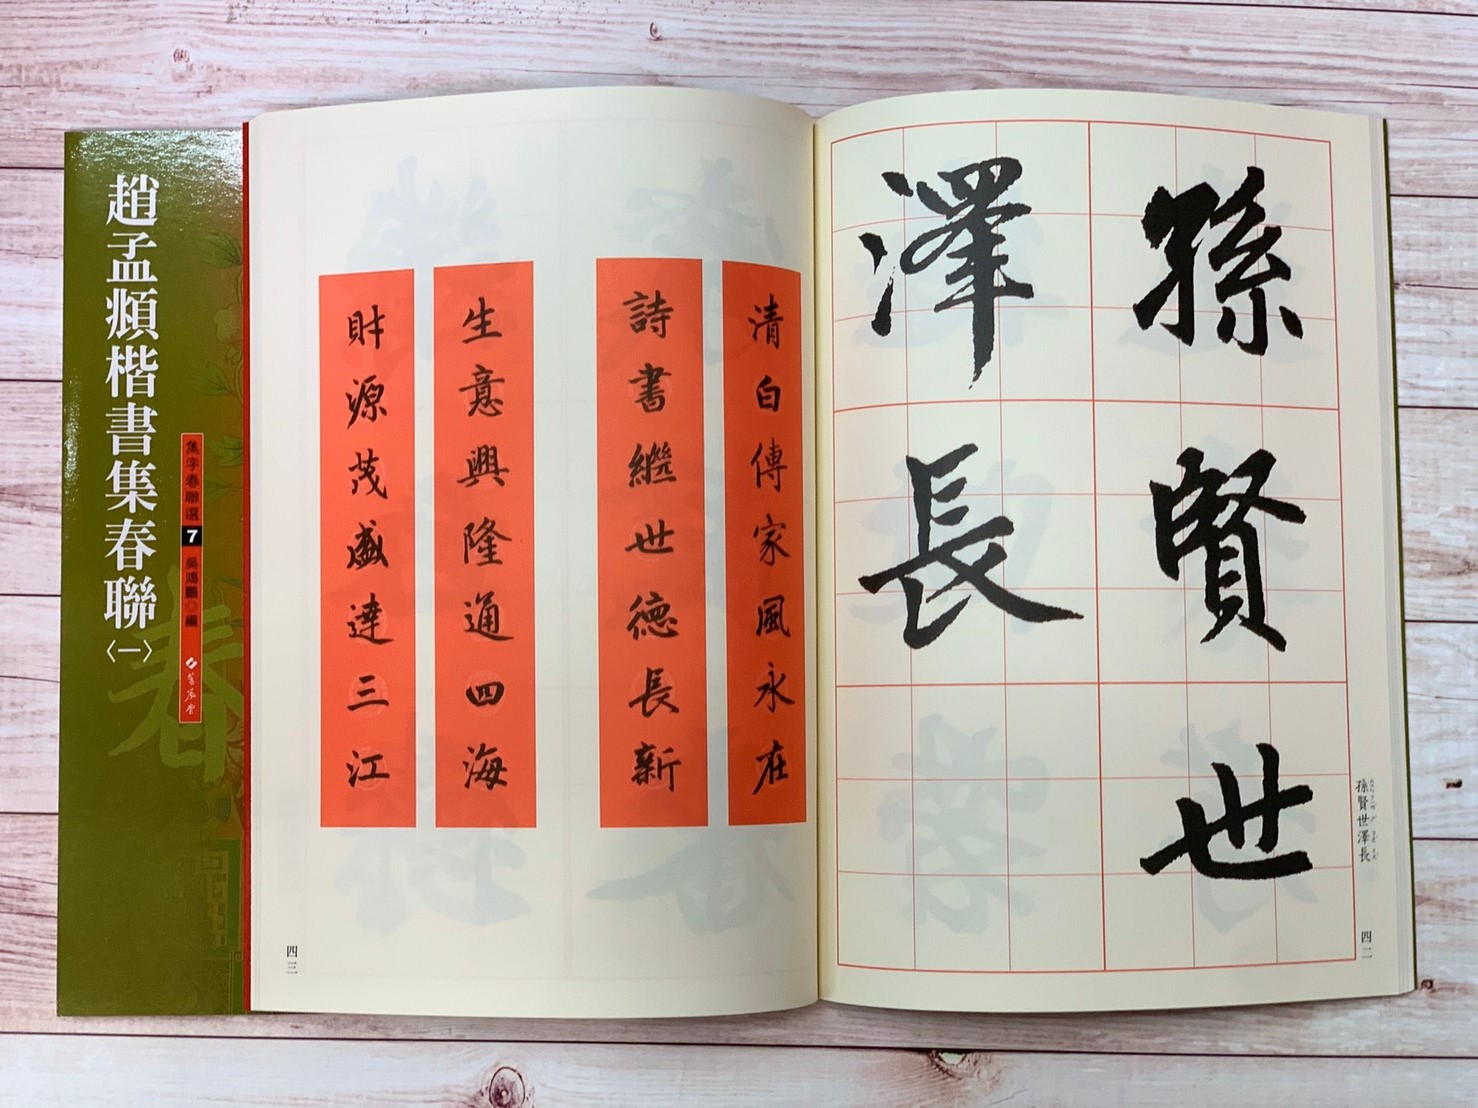 趙孟頫楷書集春聯〈一〉
集字春聯選 7 吳鴻鵬 編
蕙風堂
孫賢世
澤長
孫賢世澤長
四二
清白傳家風永在
詩書繼世德長新
生意興隆通四海
財源茂盛達三江
四三